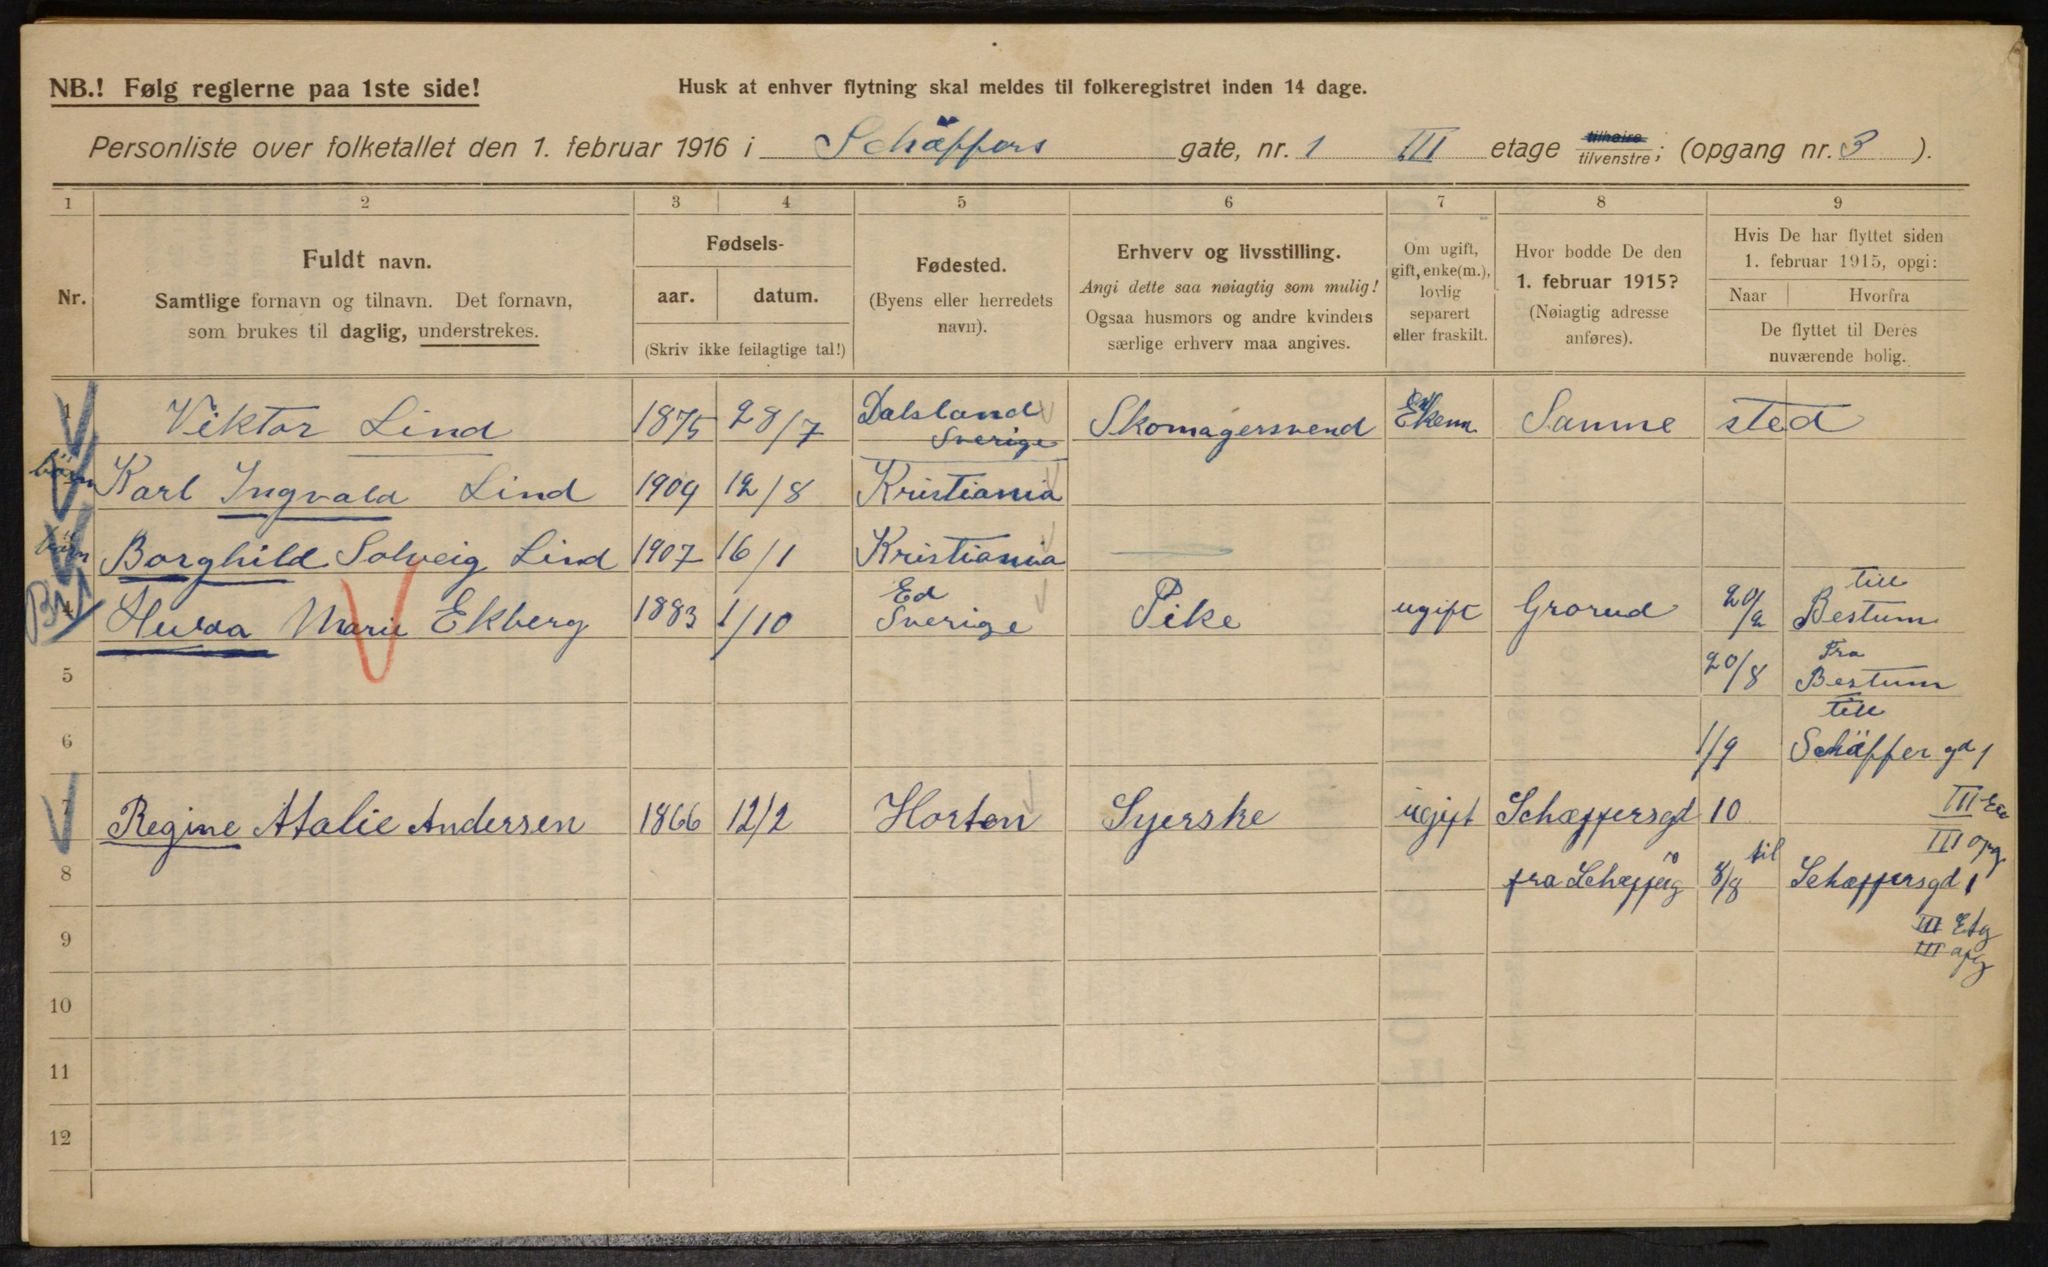 NB.! Følg reglerne paa 1ste side!
Husk at enhver flytning skal meldes til folkeregistret inden 14 dage.
Personliste over folketallet den 1. februar 1916 i Schäffers gate, nr. 1 III etage tilhøire tilvenstre; (opgang nr. 3 ).
1 2 3 4 5 6 7 8 9
Nr.
Fuldt navn.
Samtlige fornavn og tilnavn. Det fornavn,
som brukes til daglig, understrekes.
Fødsels-
aar. datum.
(Skriv ikke feilagtige tal!)
Fødested.
(Byens eller herredets
navn).
Erhverv og livsstilling.
Angi dette saa nøiagtig som mulig!
Ogsaa husmors og andre kvinders
særlige erhverv maa angives.
Om ugift,
gift, enke(m.),
lovlig
separert
eller fraskilt.
Hvor bodde De den
1. februar 1915?
(Nøiagtig adresse
anføres).
Hvis De har flyttet siden
1. februar 1915, opgi:
Naar Hvorfra
De flyttet til Deres
nuværende bolig.
1 Viktor Lind 1875 28/7 Dalsland Sverige Skomagersvend Ekem Samme sted
børn Karl Ingvald Lind 1904 12/8 Kristiania
børn Borghild Solveig Lind 1907 16/1 Kristiania
4 Hulda Marie Ekberg 1883 1/10 Ed Sverige Pike ugift Grorud 20/2 till Bestum
5 20/8 Fra Bestum
6 1/9 till Schäffer gd 1
III Eta
7 Regine Atalie Andersen 1866 12/2 Horten Syerske ugift Schæffersgd 10
III opg
8 fra Schæfferg 10 8/8 til Schæffersgd 1
9 III Etg
III opg
10
11
12